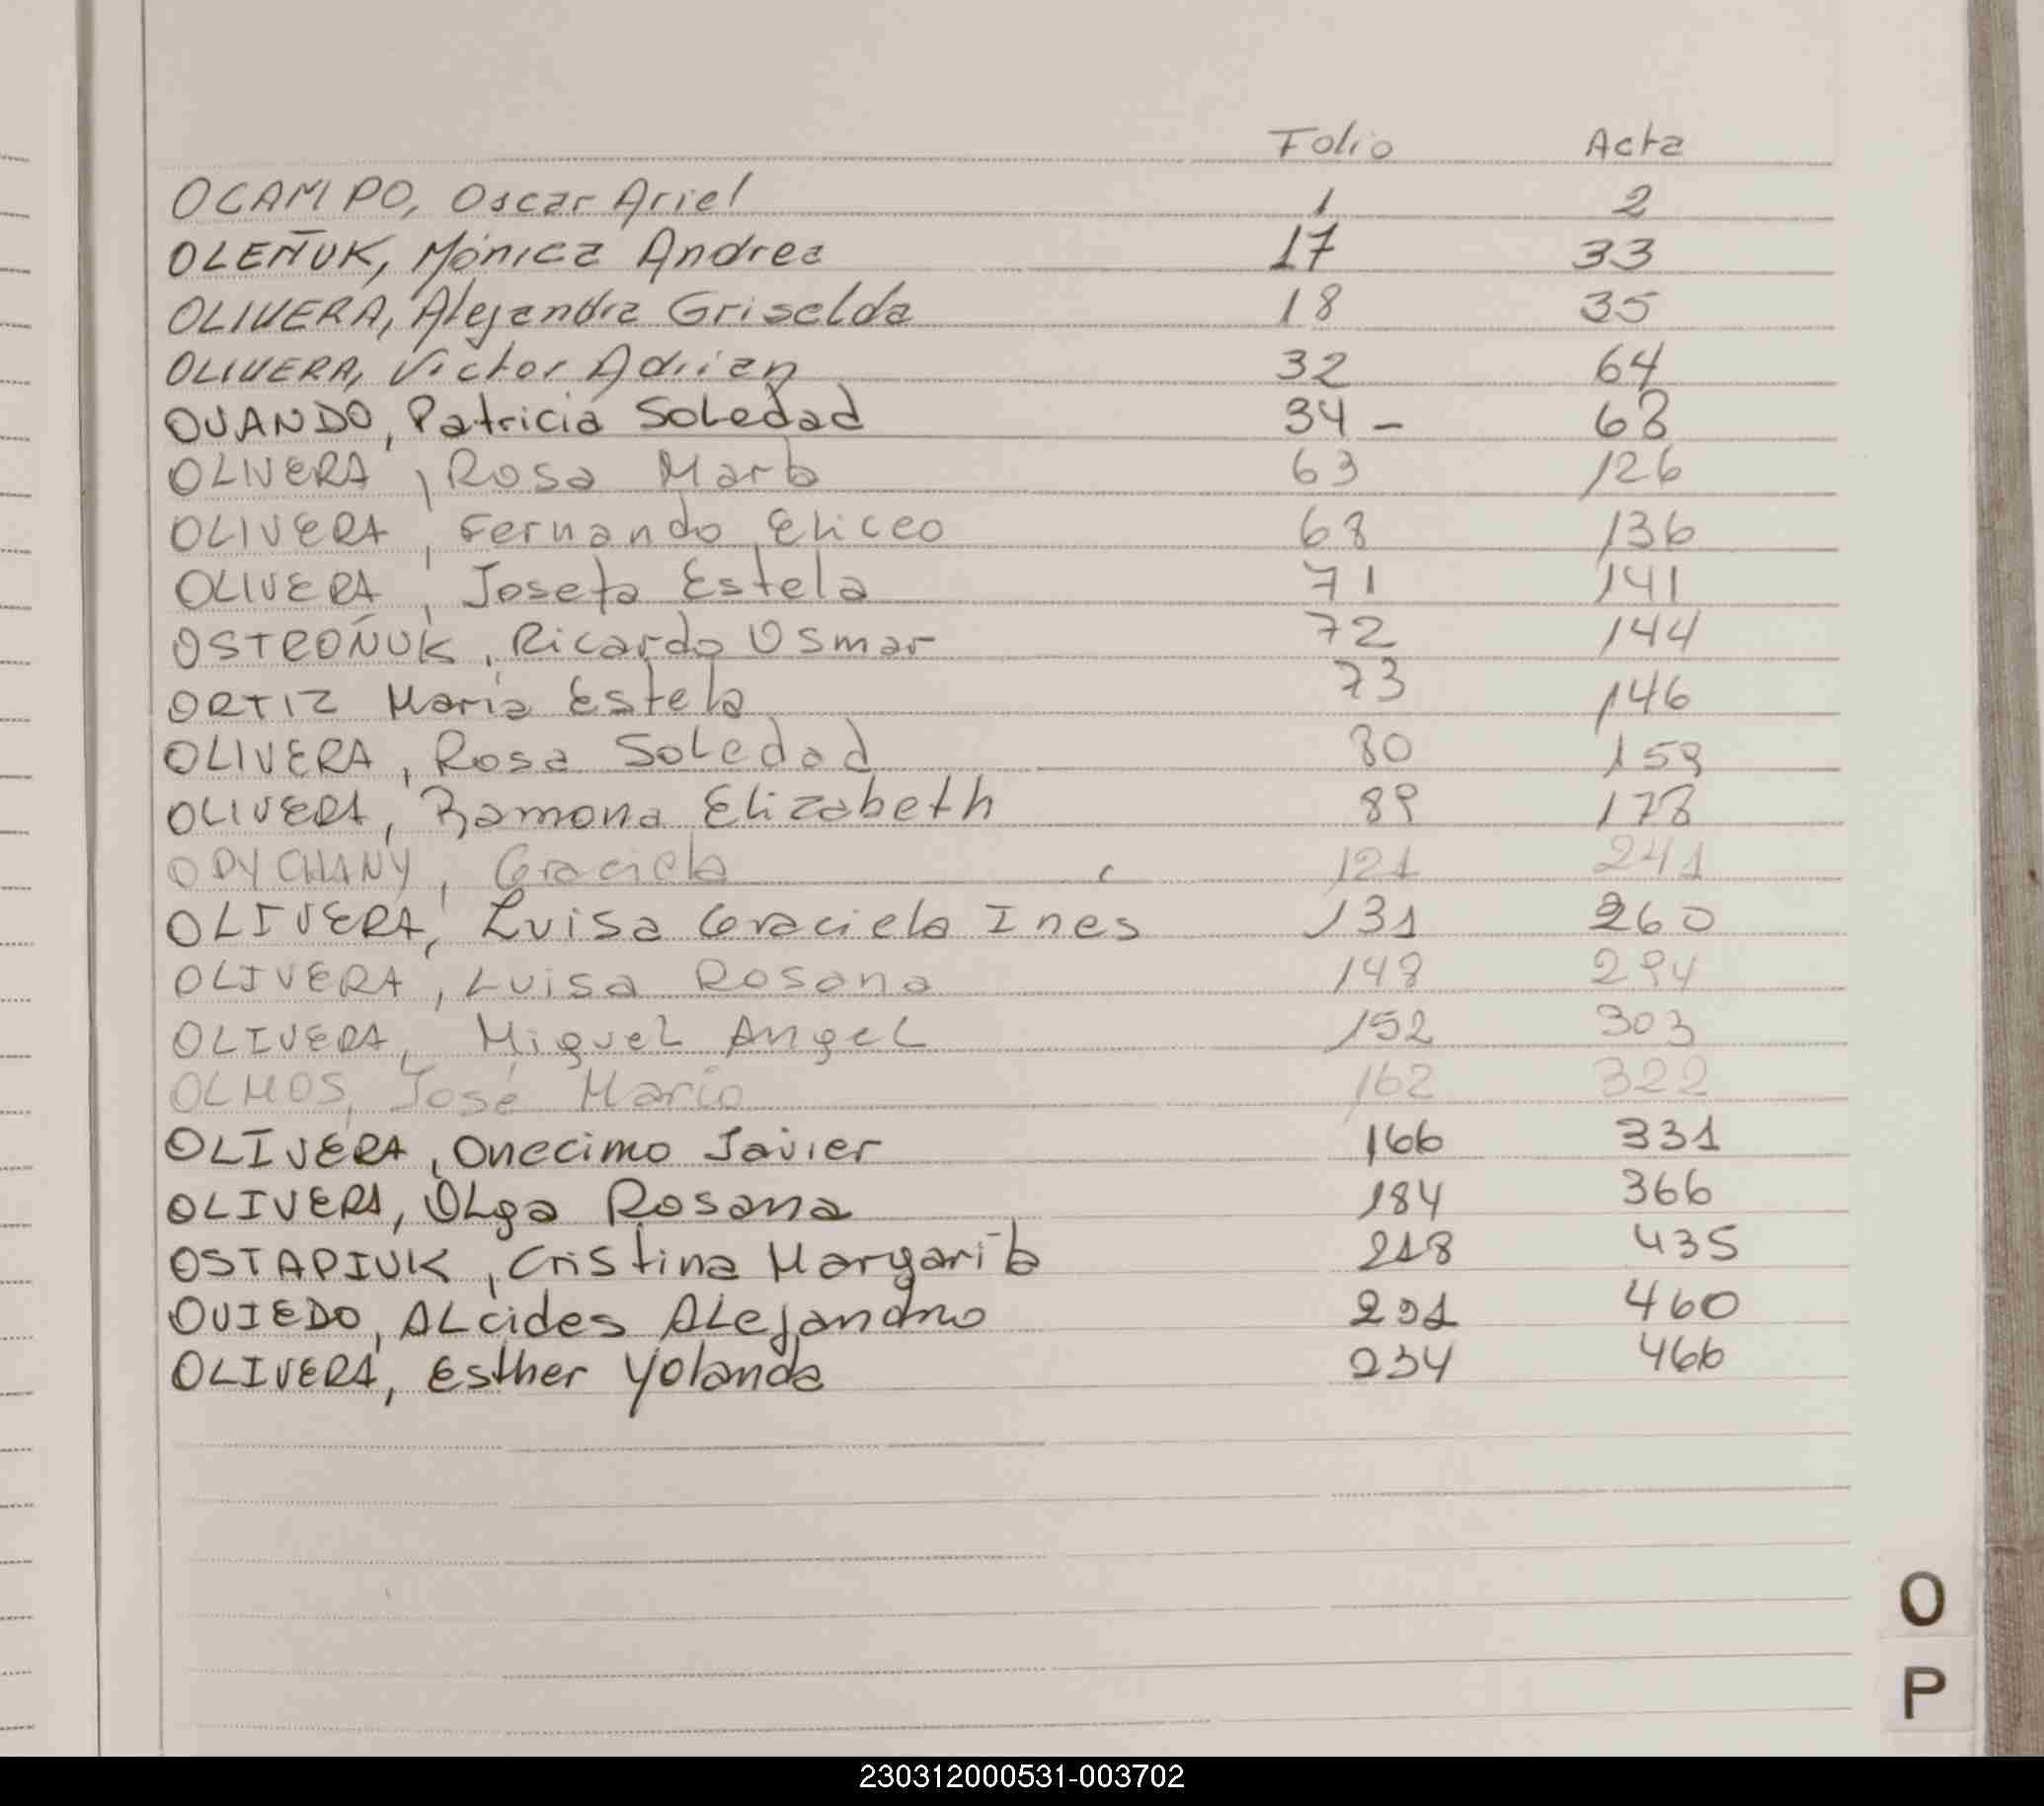 Folio Acta
OCAMPO, Oscar Ariel 1 2
OLEÑUK, Mónica Andrea 17 33
OLIVERA, Alejandra Griselda 18 35
OLIVERA, Victor Adrian 32 64
OVANDO, Patricia Soledad 34 - 68
OLIVERA, Rosa Marta 63 126
OLIVERA, Fernando Eliceo 68 136
OLIVERA, Josefa Estela 71 141
OSTROÑUK, Ricardo Osmar 72 144
ORTIZ María Estela 73 146
OLIVERA, Rosa Soledad 80 159
OLIVERA, Ramona Elizabeth 89 178
Graciela 121 241
OLIVERA, Luisa Graciela Ines 131 260
OLIVERA, Luisa Rosana 148 294
OLIVERA, Miguel Angel 152 303
OLMOS, José Mario 162 322
OLIVERA, Onecimo Javier 166 331
OLIVERA, Olga Rosana 184 366
OSTAPIUK, Cristina Margarita 218 435
OVIEDO, ALcides ALejandro 460
OLIVERA, Esther Yolanda 234 466
O
P
230312000531-003702